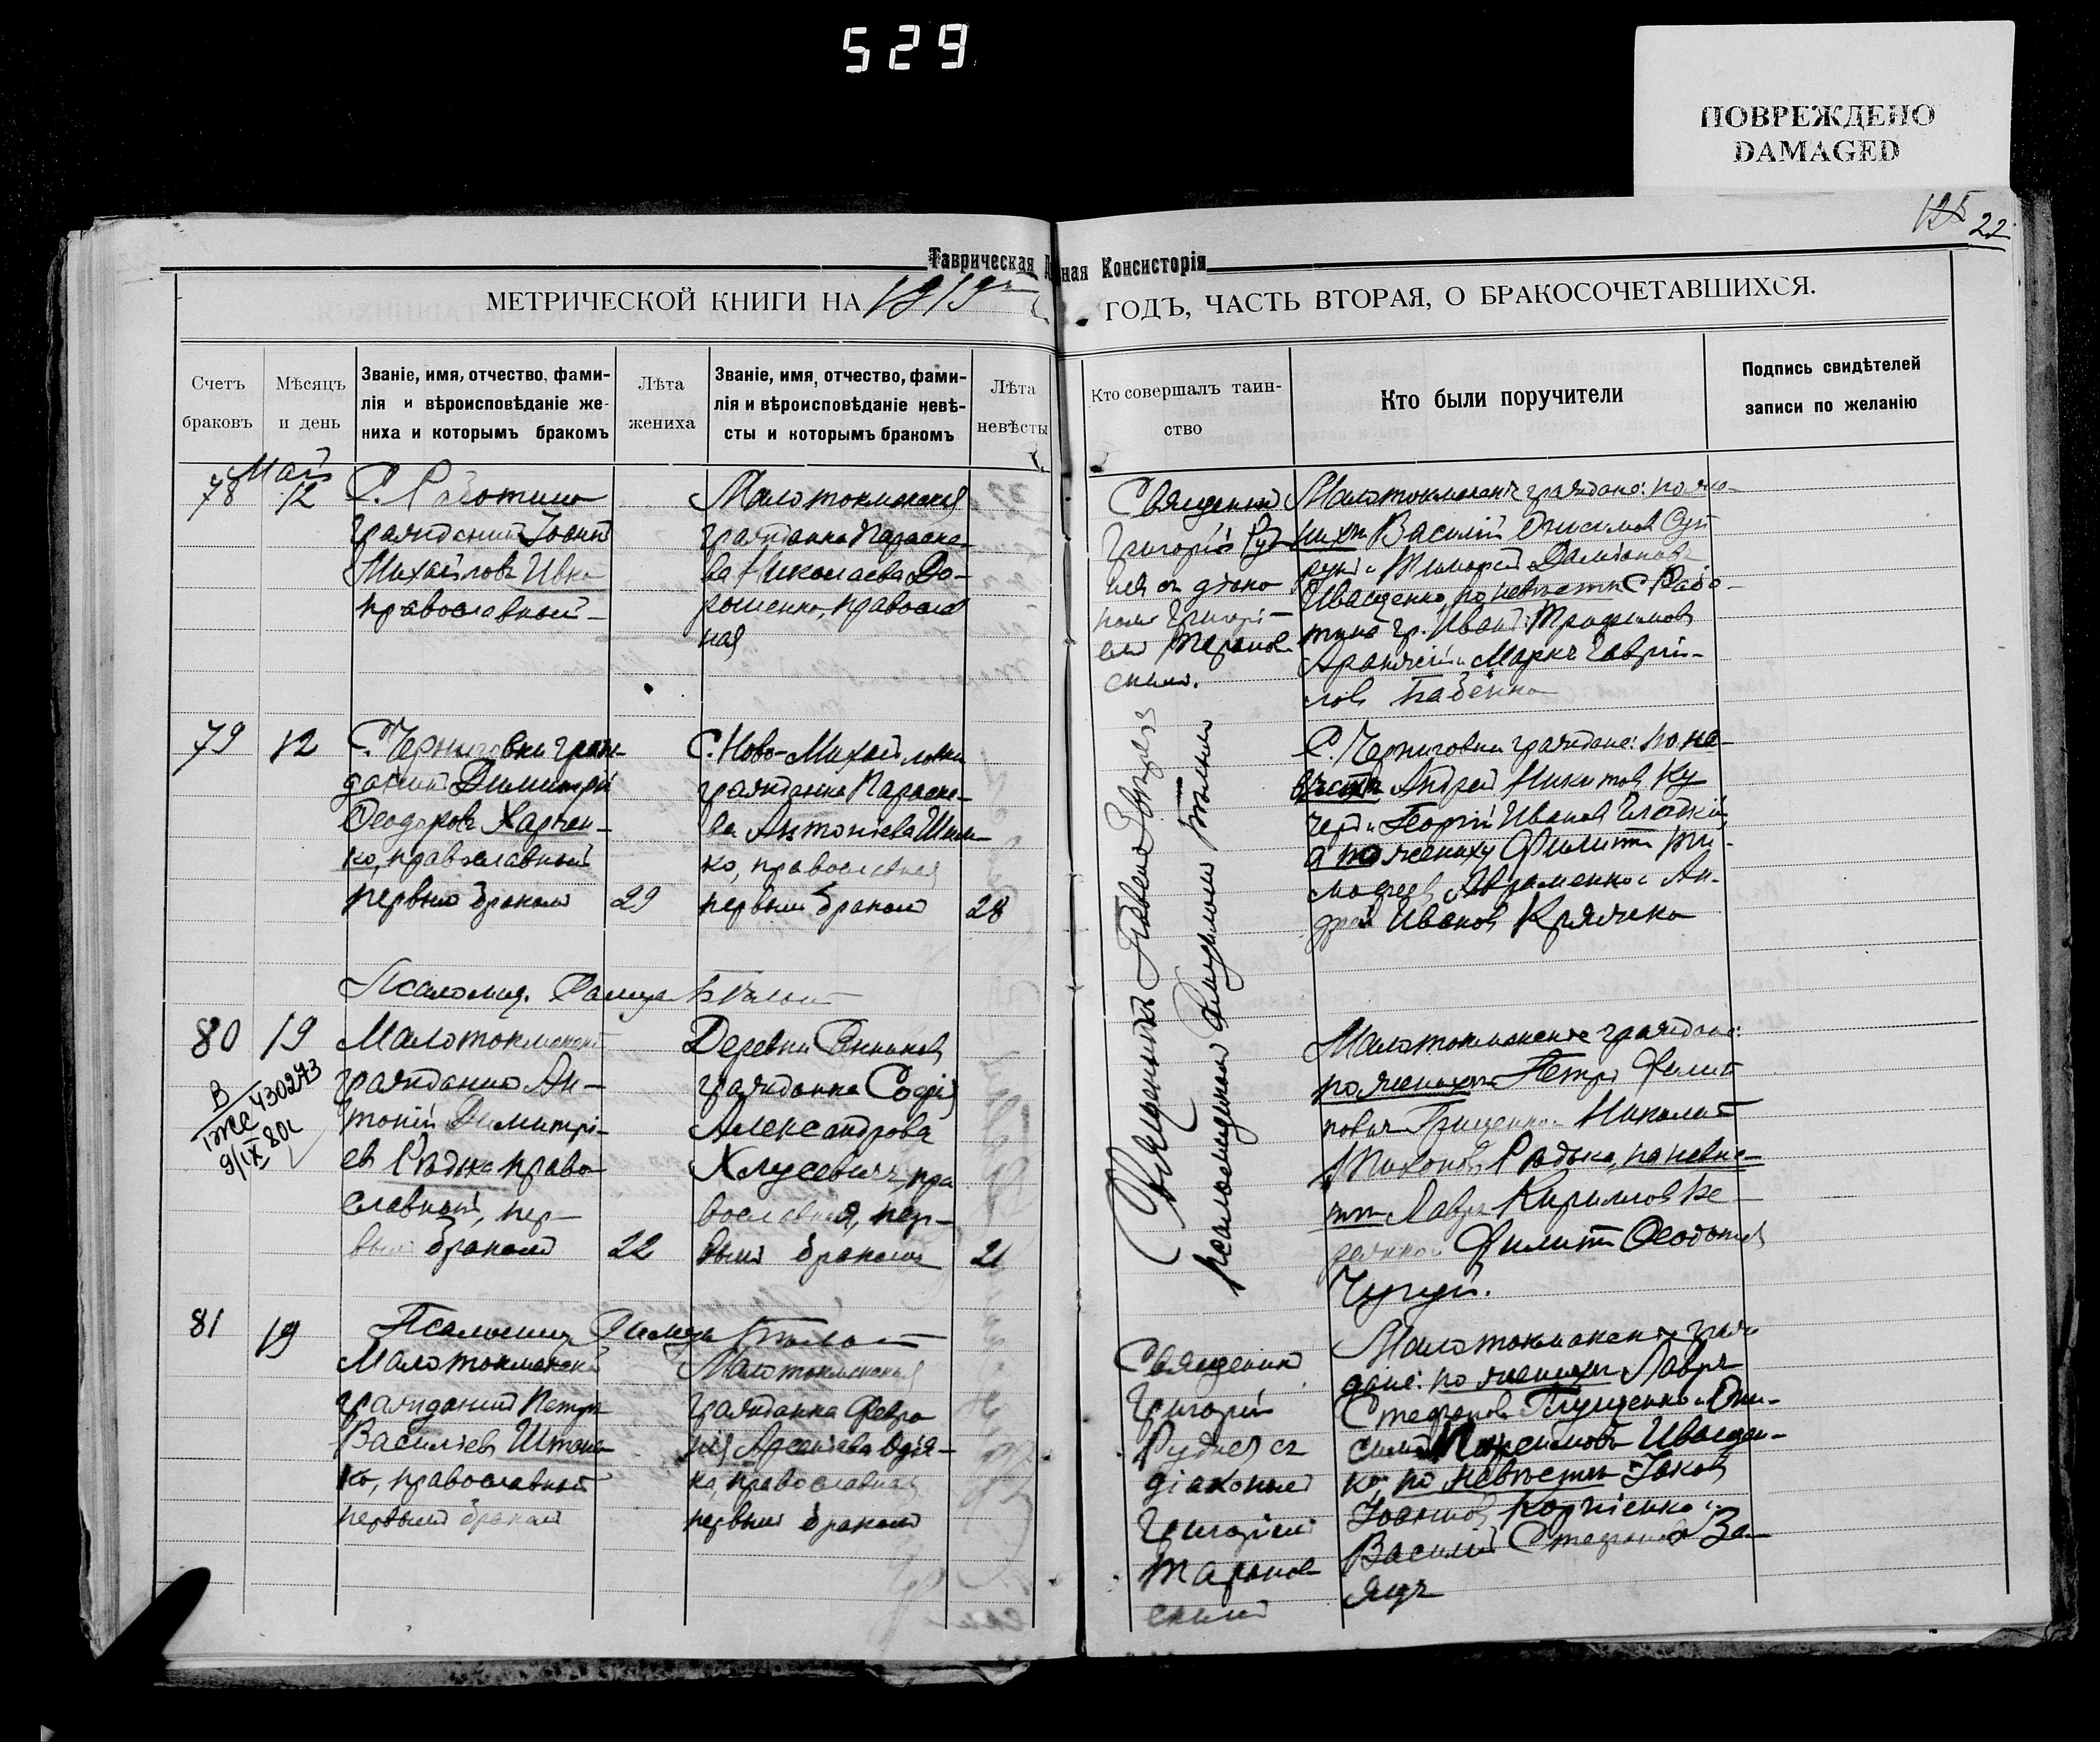 529
ПОВРЕЖДЕНО
DAMAGED
125 22
Таврическая Д ная Консисторія
МЕТРИЧЕСКОЙ КНИГИ НА 1919 ГОДЪ, ЧАСТЬ ВТОРАЯ, О БРАКОСОЧЕТАВШИХСЯ.
Счетъ браковъ
Мѣсяцъ и день
Званіе, имя, отчество, фами-
лія и вѣроисповѣданіе же-
ниха и которымъ бракомъ
Лѣта жениха
Званіе, имя, отчество, фами-
лія и вѣроисповѣданіе невѣ-
сты и которымъ бракомъ
Лѣта невѣсты
Кто совершалъ таин-
ство
Кто были поручители
Подпись свидѣтелей
записи по желанію
Май
78 12
гражданинъ Іоаннъ
Михайловъ Ивко
православный
Малотокмакская
гражданка Параске-
ва Николаева До-
рошенко, православ
ная
Священник
Григорій Руд
нев съ діако
ном Григорі-
ем Таранов
ским.
Малотокмакскіе граждане: по же-
нихѣ Василій
Тимофей Даміанов
Иващенко, по невѣстѣ С. Рабо-
тина гр. Иван Трофимов
и Маркъ Гаврии-
лов Бабенко
79 12
С. Черниговки граж-
данин Димитрій
Феодоров Харчен-
ко, православный
первым браком
29
С. Ново-Михайловки
гражданка Параске-
ва Антоніева Шим-
ко, православная
первым браком
28
С. Черниговки граждане: по не-
вѣстѣ Андрей Никитов Ку
чер и Георгій Иванов Гладкій,
а по жениху Филипп Ти-
мофеев Авраменко и Ан-
дрей Иванов Крячко
Священникъ Павел
псаломщиком
Псаломщ.
80 19
В
1жс 430273
9/IX 80г
Малотокмакскій
гражданин Ан-
тоній Димитрі-
ев Рѣдька право-
славный, пер-
вым браком
22
Деревни
гражданка Софія
Александрова
Хлусевичъ, пра
вославная, пер-
вым браком
21
Малотокмакскіе граждане:
по женихѣ Петръ Филип
пович Гриценко и Николай
Тихонов Рѣдька, по невѣ-
стѣ Лавръ Кириллов
Филипп Феодотов
Чугуй.
81 19
Псаломщ.
Малотокмакскій
гражданин Петръ
Василіев Штань
ко, православный
первым браком
Малотокмакская
гражданка Февро
нія Арсеніева
ка, православная
первым браком
Священник
Григорій
Руднев съ
діаконом
Григоріем
Таранов
ским
Малотокмакскіе граж
дане: по женихѣ Лавръ
Стефанов Глущенко и Они-
сим Иващен-
ко, по невѣстѣ Іаков
Іоаннов Корніенко и
Василій Стефанов За-
яцъ